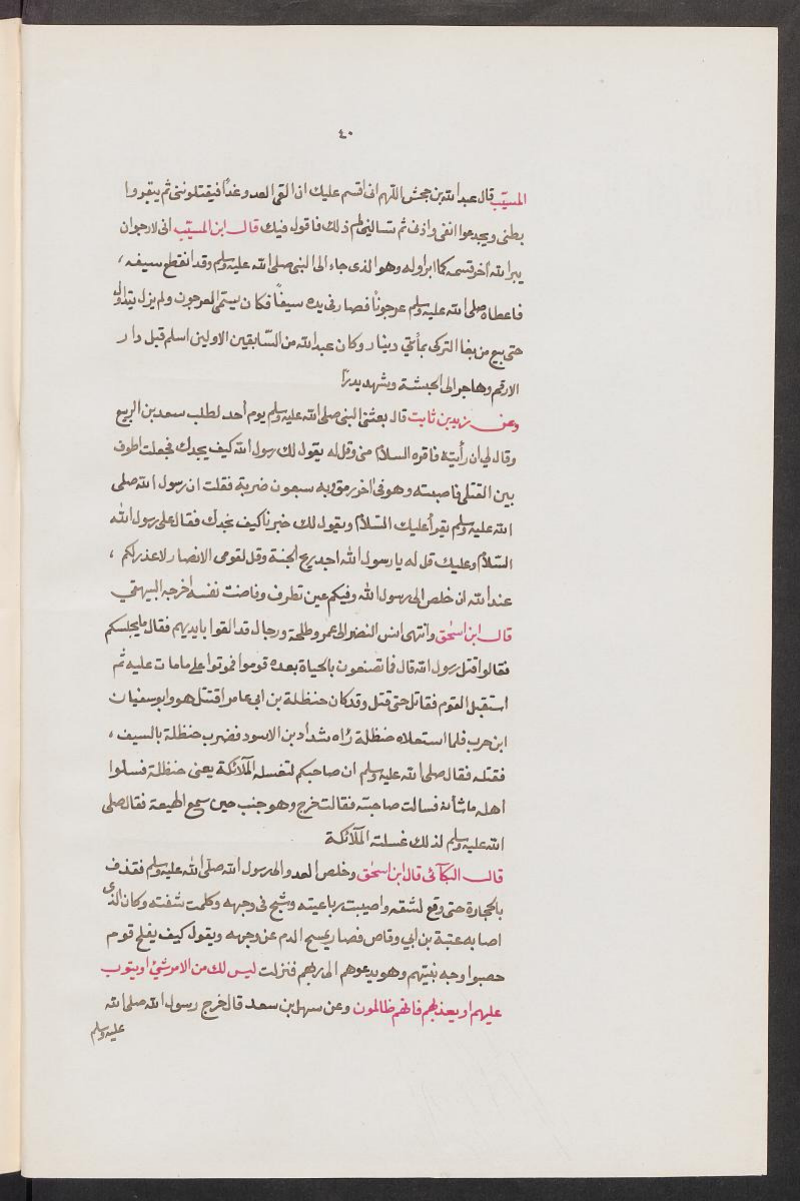 ٤٠
المسيّب قال عبد الله بن جحش اللّهم انى اقسم عليك ان القى العدو غدًا فيقتلوننى ثم يبقروا
بطنى ويجدعوا انفى واذنى ثم تسالنى لم ذلك فاقول فيك قال ابن المسيّب انى لارجوان
يبر الله أخر قسمه كما ابر اوله وهو الذى جاء الى النبى صلى الله عليه وسلم وقد انقطع سيفه ،
فاعطاه صلى الله عليه وسلم عرجونًا فصار فى يده سيفًا فكان يسمّى العرجون ولم يزل يتداول
حتى بيع من بغا التركى بمأتي دينار وكان عبد الله من السّابقين الاولين اسلم قبل دار
الارقم وهاجر الى الحبشة وشهد بدرًا
وعن زيد بن ثابت قال بعثنى النبى صلى الله عليه وسلم يوم أحد لطلب سعد بن الربيع
وقال لى ان رأيته فاقره السلام منى وقل له يقول لك رسول الله كيف يجدك فجعلت اطوف
بين القتلى فاصبته وهو فى أخر رمق وبه سبعون ضربة فقلت ان رسول الله صلى
الله عليه وسلم يقرأ عليك السّلام ويقول لك خبرنا كيف نجدك فقال على رسول الله
السّلام وعليك قل له يا رسول الله اجد ريح الجنة وقل لقومى الانصار لا عذر لكم ،
عند الله ان خلص الى رسول الله وفيكم عين تطرف وفاضت نفسه اخرجه البيهقي
قال ابن اسحٰق وانتهى انس النضر الى عمر وطلحة ورجال قد القوا بايديهم فقال ما يجلسكم
فقالوا قتل رسول الله قال فما تصنعون بالحياة بعده قوموا فموتوا على ما مات عليه ثم
استقبل القوم فقاتل حتى قتل وقد كان حنظلة بن ابى عامر اقتتل هو وابو سفيان
ابن حرب فلما استعلاه حنظلة رأه شداد بن الاسود فضرب حنظلة بالسيف ،
فقتله فقال صلى الله عليه وسلم ان صاحبكم لتغسله الملآئكة يعنى حنظلة فسلوا
اهله ما شأنه فسالت صاحبته فقالت خرج وهو جنب حين سمع الهيعة فقال صلى
الله عليه وسلم لذلك غسلته الملآئكة
قال البكآئى قال ابن اسحٰق وخلص العدو الى رسول الله صلى الله عليه وسلم فقذف
بالحجارة حتى وقع لشقه واصيبت رباعيته وشج فى وجهه وكلمت شفته وكان الذى
اصابه عتبة بن ابي وقاص فصار يمسح الدم عن وجهه ويقول كيف يفلح قوم
خضبوا وجه نبيّهم وهو يدعوهم الى ربهم فنزلت ليس لك من الامر شئ او يتوب
عليهم او يعذبهم فانهم ظالمون وعن سهل بن سعد قال خرج رسول الله صلى الله
عليه وسلم